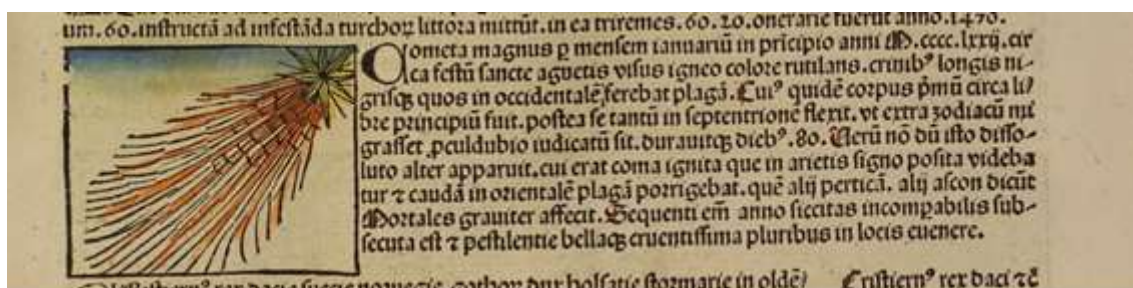 um. 60. instructā ad infestāda turchoꝝ littora mittūt. in ea triremes. 60. 20. onerarie fuerūt anno. 1470.
Cometa magnus ꝑ mensem ianuariū in prīcipio anni M. cccc. lxxij. cir
ca festū sancte agnetis visus igneo colore rutilans. crinibꝰ longis ni-
grisqꝫ quos in occidentalē ferebat plagā. Cuiꝰ quidē corpus pͥmū circa li/
bre principiū fuit. postea se tantū in septentrionē flexit. vt extra zodiacū mi
grasset ꝓculdubio iudicatū sit. durauitqꝫ diebꝰ. 80. Uerū nō dū isto disso-
luto alter apparuit. cui erat coma ignita que in arietis signo posita videba
tur ⁊ caudā in orientalē plagā porrigebat. quē alij perticā. alij ascon dicūt
Mortales grauiter affecit. Sequenti em̄ anno siccitas incomꝑabilis sub-
secuta est ⁊ pestilentie bellaqꝫ cruentissima pluribus in locis euenere.
rex dacie suecie noruegie. gothoꝝ dux holsatie stormarie in oldē/
Cristiernꝰ rex daci ⁊c̄